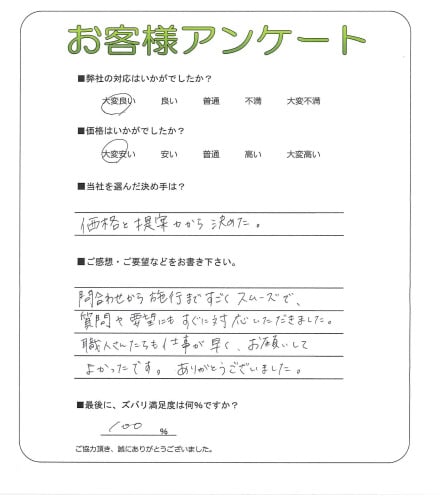 お客様アンケート
■弊社の対応はいかがでしたか？
大変良い 良い 普通 不満 大変不満
■価格はいかがでしたか？
大変安い 安い 普通 高い 大変高い
■当社を選んだ決め手は？
価格と提案力から決めた。
■ご感想・ご要望などをお書き下さい。
問合わせから施行まですごくスムーズで、
質問や要望にもすぐに対応いただきました。
職人さんたちも仕事が早く、お願いして
よかったです。ありがとうございました。
■最後に、ズバリ満足度は何％ですか？
100 %
ご協力頂き、誠にありがとうございました。